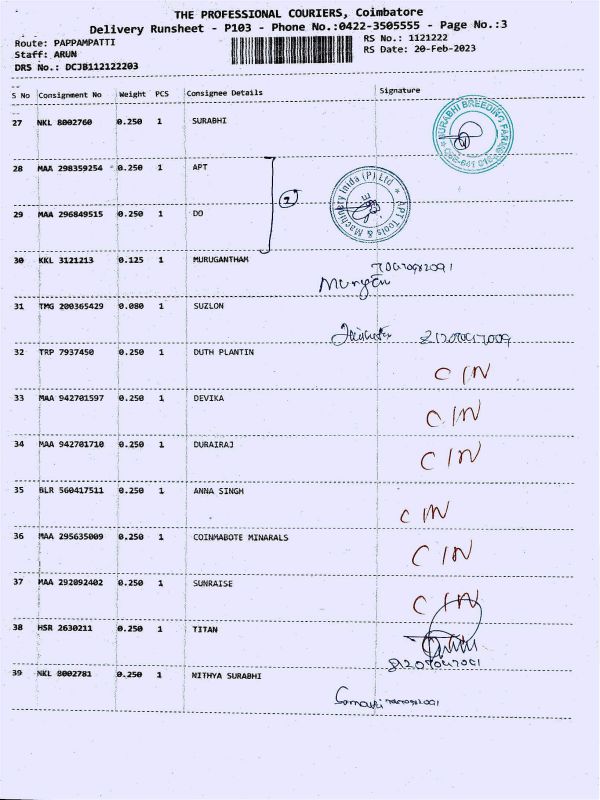 THE PROFESSIONAL COURIERS, Coimbatore
Delivery Runsheet - P103 - Phone No.:0422-3505555 - Page No.:3
Route: PAPPAMPATTI
RS No.: 1121222
Staff: ARUN
RS Date: 20-Feb-2023
DRS No.: DCJB112122203
S No Consignment No Weight PCS Consignee Details Signature
27 NKL 8002760 0.250 1 SURABHI
SURABHI BREEDING FARM
28 MAA 298359254 0.250 1 APT
2
APT Tools & Machinery Inida (P) Ltd
29 MAA 296849515 0.250 1 DO
30 KKL 3121213 0.125 1 MURUGANTHAM
31 TMG 200365429 0.080 1 SUZLON
32 TRP 7937450 0.250 1 DUTH PLANTIN
CIN
33 MAA 942701597 0.250 1 DEVIKA
CIN
34 MAA 942701710 0.250 1 DURAIRAJ
CIN
35 BLR 560417511 0.250 1 ANNA SINGH
CIN
36 MAA 295635009 0.250 1 COINMABOTE MINARALS
CIN
37 MAA 292092402 0.250 1 SUNRAISE
CIN
38 HSR 2630211 0.250 1 TITAN
39 NKL 8002781 0.250 1 NITHYA SURABHI